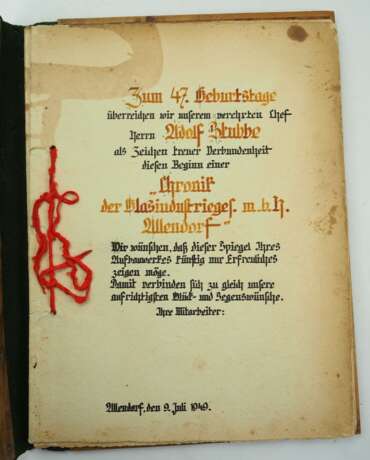 Zum 47. Geburtstage
überreichen wir unserem verehrten Chef
Herrn Adolf Stubbe
als Zeichen treuer Verbundenheit
diesen Beginn einer
„Chronik
der Glasindustrieges. m. b. H.
Allendorf"
Wir wünschen, daß dieser Spiegel Ihres
Aufbauwerkes künftig nur Erfreuliches
zeigen möge.
Damit verbinden sich zu gleich unsere
aufrichtigsten Glück- und Segenswünsche.
Ihre Mitarbeiter:
Allendorf, den 9. Juli 1949.